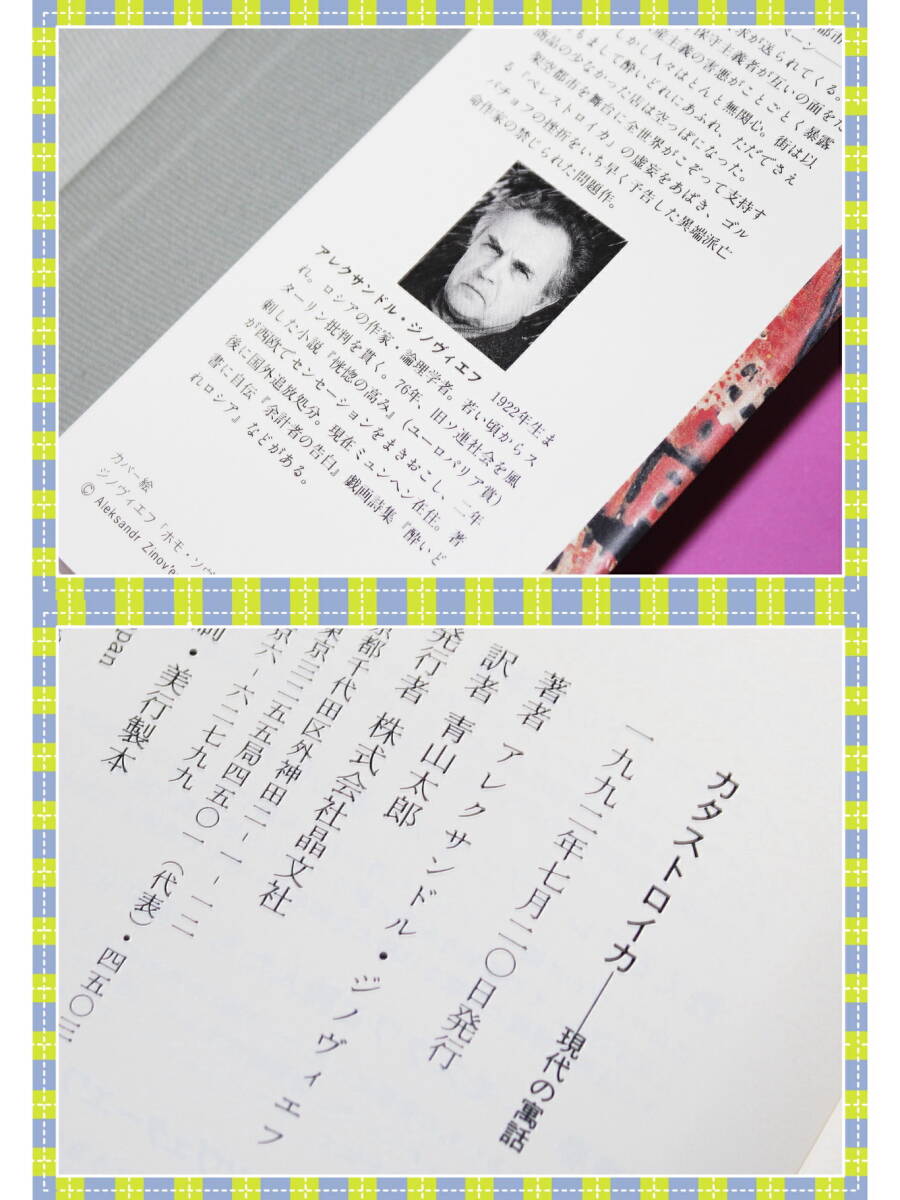 水が送られてくる。
保守主義者が互いの面をた
産主義の害悪がことごとく暴露
しかし人々はほとんど無関心。街は以
ちまして酔いどれにあふれ、ただでさえ
商品の少なかった店は空っぽになった。
架空都市を舞台に全世界がこぞって支持す
る『ペレストロイカ』の虚妄をあばき、ゴル
バチョフの挫折をいち早く予告した異端派亡
命作家の禁じられた問題作。
アレクサンドル・ジノヴィエフ 1922年生ま
れ。ロシアの作家・論理学者。若い頃からス
ターリン批判を貫く。76年、旧ソ連社会を風
刺した小説『恍惚の高み』(ユーロパリア賞)
が西欧でセンセーションをまきおこし、二年
後に国外追放処分。現在ミュンヘン在住。著
書に自伝『余計者の告白』戯画詩集『酔いど
れロシア』などがある。
カバー絵
ジノヴィエフ「ホモ・ソヴ
© Aleksandr Zinov'e
カタストロイカ——現代の寓話
一九九二年七月二〇日発行
著者 アレクサンドル・ジノヴィエフ
訳者 青山太郎
発行者 株式会社晶文社
京都千代田区外神田二-一-一二
東京三二五五局四五〇一(代表)・四五〇三
京六-六二七九九
・美行製本
pan